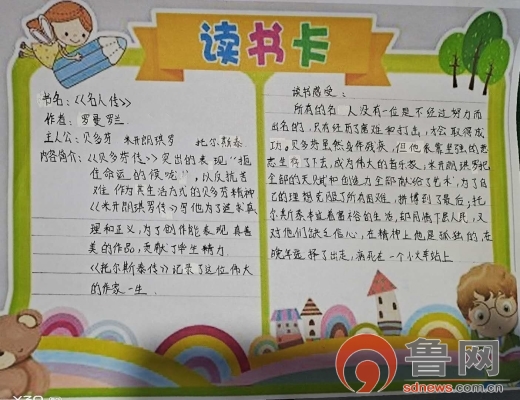 读书卡
书名：《名人传》
作者：罗曼罗兰
主人公：贝多芬 米开朗琪罗 托尔斯泰
内容简介：《贝多芬传》突出的表现“扼
住命运的喉咙”，以反抗苦
难作为其生活方式的贝多芬精神
《米开朗琪罗传》写他为了追求真
理和正义，为了创作能表现真善
美的作品，贡献了毕生精力
《托尔斯泰传》记录了这位伟大
的作家一生
读书感受：
所有的名人没有一位是不经过努力而
出名的，只有经历了磨难和打击，才会取得成
功。贝多芬虽然身体残疾，但他靠着坚强的意
志生存了下去，成为伟大的音乐家；米开朗琪罗把
全部的天赋和创造力全部献给了艺术，为了自
己的理想克服了所有困难，拼搏到了最后；托
尔斯泰享过着富裕的生活，却同情下层人民，又
对他们缺乏信心，在精神上他是孤独的，在
晚年选择了出走，病死在一个小火车站上
鲁网
sdnews.com.cn